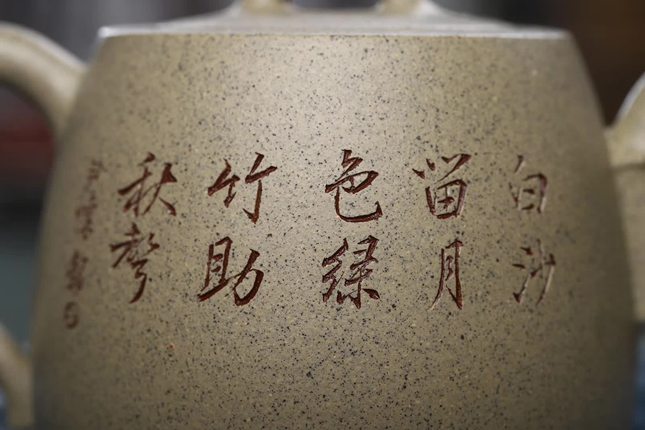 白沙
留月
色綠
竹助
秋聲